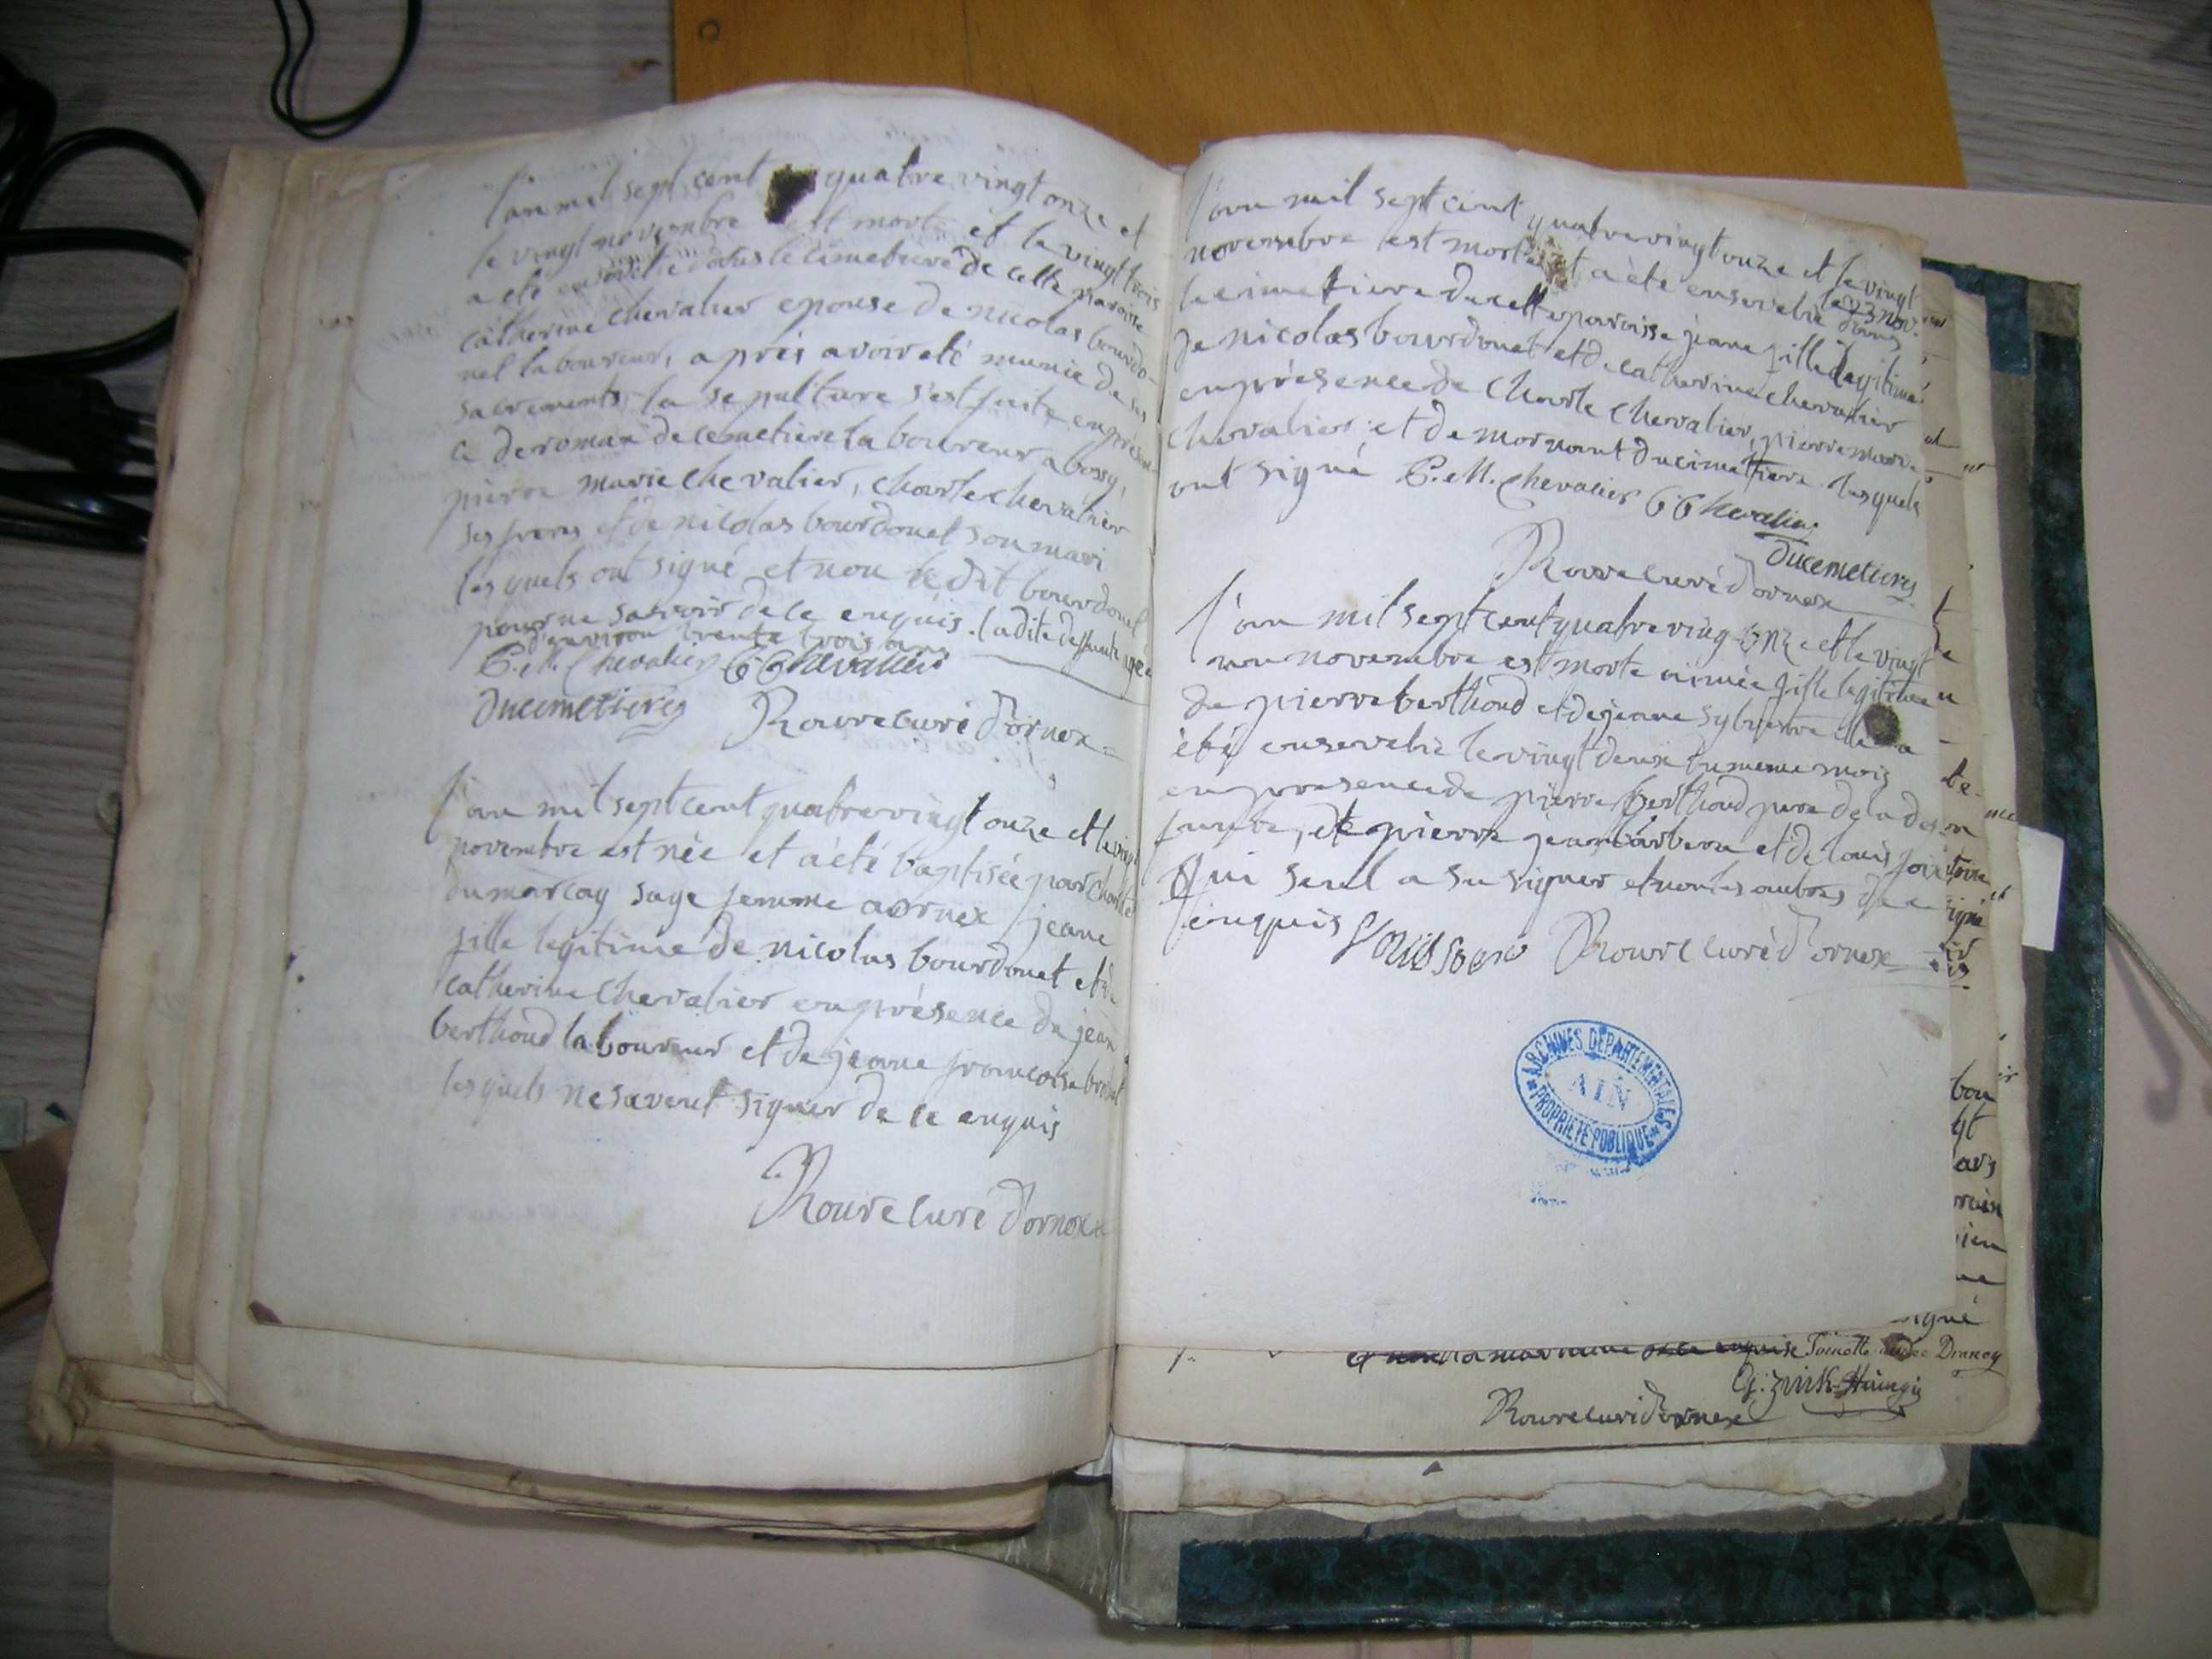 l'an mil sept cent quatre vingt onze et
le vingt novembre est morte et le vingt trois
a été ensevelie dans le cimetiere de cette paroisse
catherine chevalier epouse de nicolas bourdo-
nel laboureur, apris avoir eté munie de ses
sacrements, la sepulture s'est faite en presen-
ce de roman ducemetiere laboureur a bossy,
pierre marie chevalier, charle chevalier
ses freres et de nicolas bourdonel son mari
lesquels ont signé et non le dit bourdonel
pour ne savoir de ce enquis. la dite defunte agée
d'environ trente trois ans
P. M. Chevalier C Chevallier
Ducemetierez Rouvre curé d'ornex
l'an mil sept cent quatre vingt onze et le vingt
novembre est née et a été baptisée par charlote
dumarcay sage femme a ornex jeane
fille legitime de nicolas bourdonet et de
catherine chevalier en présence de jean
berthoud laboureur et de jeane francoise
lesquels ne savent signer de ce enquis
Rouvre curé d'ornex
l'an mil sept cent quatre vingt onze et le vingt
novembre est morte et a été ensevelie le 23 nov. dans
le cimetiere de cette paroisse jeane fille legitime
de nicolas bourdonet et de catherine chevalier
en présence de charle chevalier, pierre marie
chevalier et de ducimetiere lesquels
ont signé P. M. Chevalier C Chevalier
Ducemetierez
Rouvre curé d'ornex
l'an mil sept cent quatre ving onze et le vingt
un novembre est morte aimée fille legitime
de pierre berthoud et de jeane sylvestre elle a
été ensevelie le vingt deux du meme mois
en presence de pierre berthoud pere de la de-
funte, de pierre jean barberou et de louis
Qui seul a su signer et non les autres de ce
enquis Rouvre curé d'ornex
ARCHIVES DEPARTEMENTALES
AIN
PROPRIETE PUBLIQUE
signé
Rouvre curé d'ornex